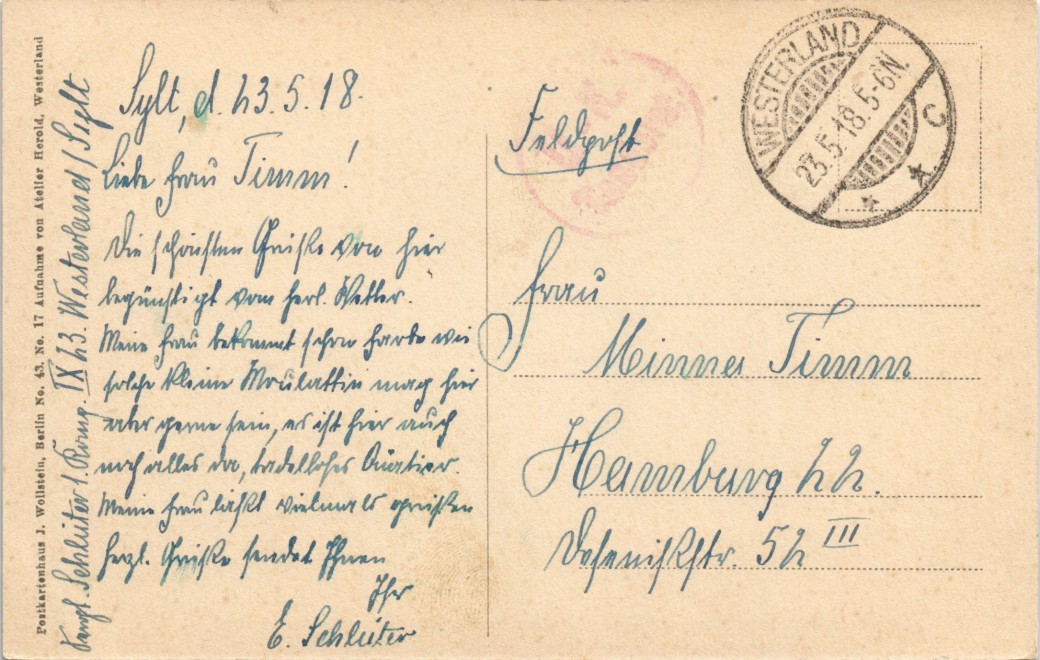 Sylt, d. 23.5.18.
Liebe Frau Timm!
Die schönsten Grüße von hier
begünstigt vom herl. Wetter.
Meine Frau bekommt schon Farbe wie
solche kleine Moulattin mag hier
aber gerne sein, es ist hier auch
noch alles da, tadelloses Quatier.
Meine Frau läßt vielmals grüßen
herzl. Grüße sendet Ihnen
Ihr
E. Schlüter
Schlüter 1. Komp. IX 23. Westerland/Sylt
Postkartenhaus J. Wollstein, Berlin No. 43. No. 17 Aufnahme von Atelier Herold, Westerland
Feldpost
WESTERLAND
23.5.18.5-6N.
* *
Frau
Minna Timm
Hamburg 22.
52 III